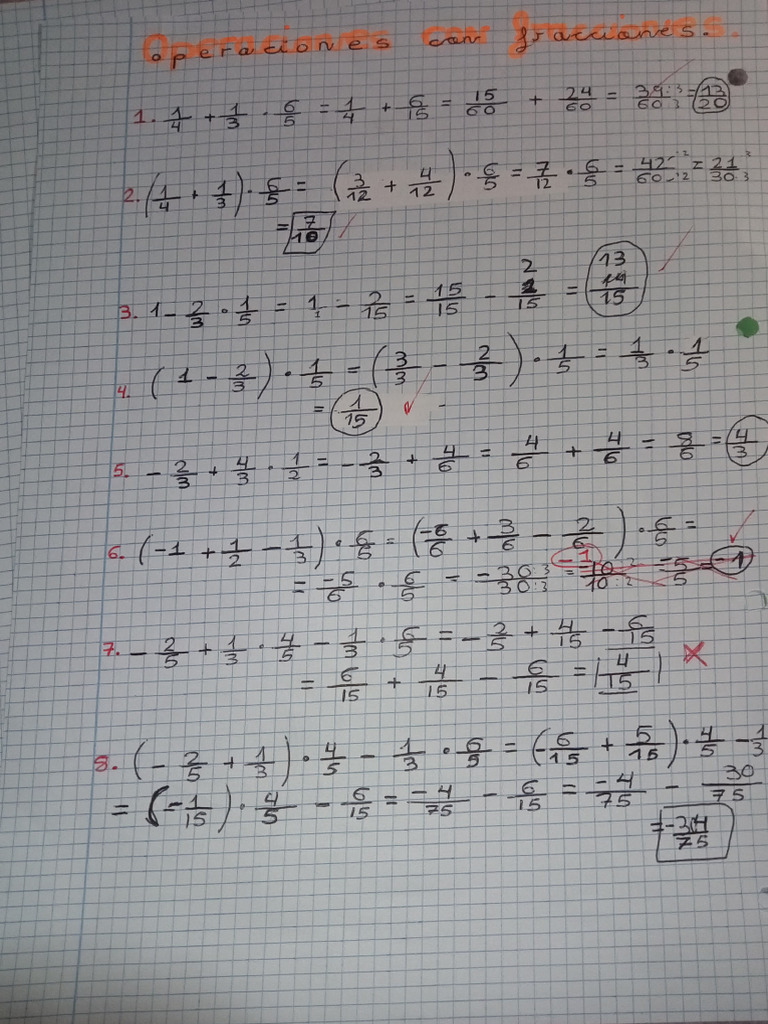 Operaciones con fracciones.
1. 1/4 + 1/3 · 6/5 = 1/4 + 6/15 = 15/60 + 24/60 = 39:3/60:3 = 13/20
2. (1/4 + 1/3) · 6/5 = (3/12 + 4/12) · 6/5 = 7/12 · 6/5 = 42/60 = 21/30
= 7/10
3. 1 - 2/3 · 1/5 = 1/1 - 2/15 = 15/15 - 2/15 = 13/15
4. (1 - 2/3) · 1/5 = (3/3 - 2/3) · 1/5 = 1/3 · 1/5
= 1/15
5. - 2/3 + 4/3 · 1/2 = - 2/3 + 4/6 = 4/6 + 4/6 = 8/6 = 4/3
6. (-1 + 1/2 - 1/3) · 6/5 = (-6/6 + 3/6 - 2/6) · 6/5 =
= -5/6 · 6/5 = -30:3/30:3 = -10/10:2 = -5/5 = -1
-1
7. - 2/5 + 1/3 · 4/5 - 1/3 · 6/5 = - 2/5 + 4/15 - 6/15
= 6/15 + 4/15 - 6/15 = 4/15
8. (- 2/5 + 1/3) · 4/5 - 1/3 · 6/5 = (-6/15 + 5/15) · 4/5 - 1/3
= (-1/15) · 4/5 - 6/15 = -4/75 - 6/15 = -4/75 - 30/75
= -34/75